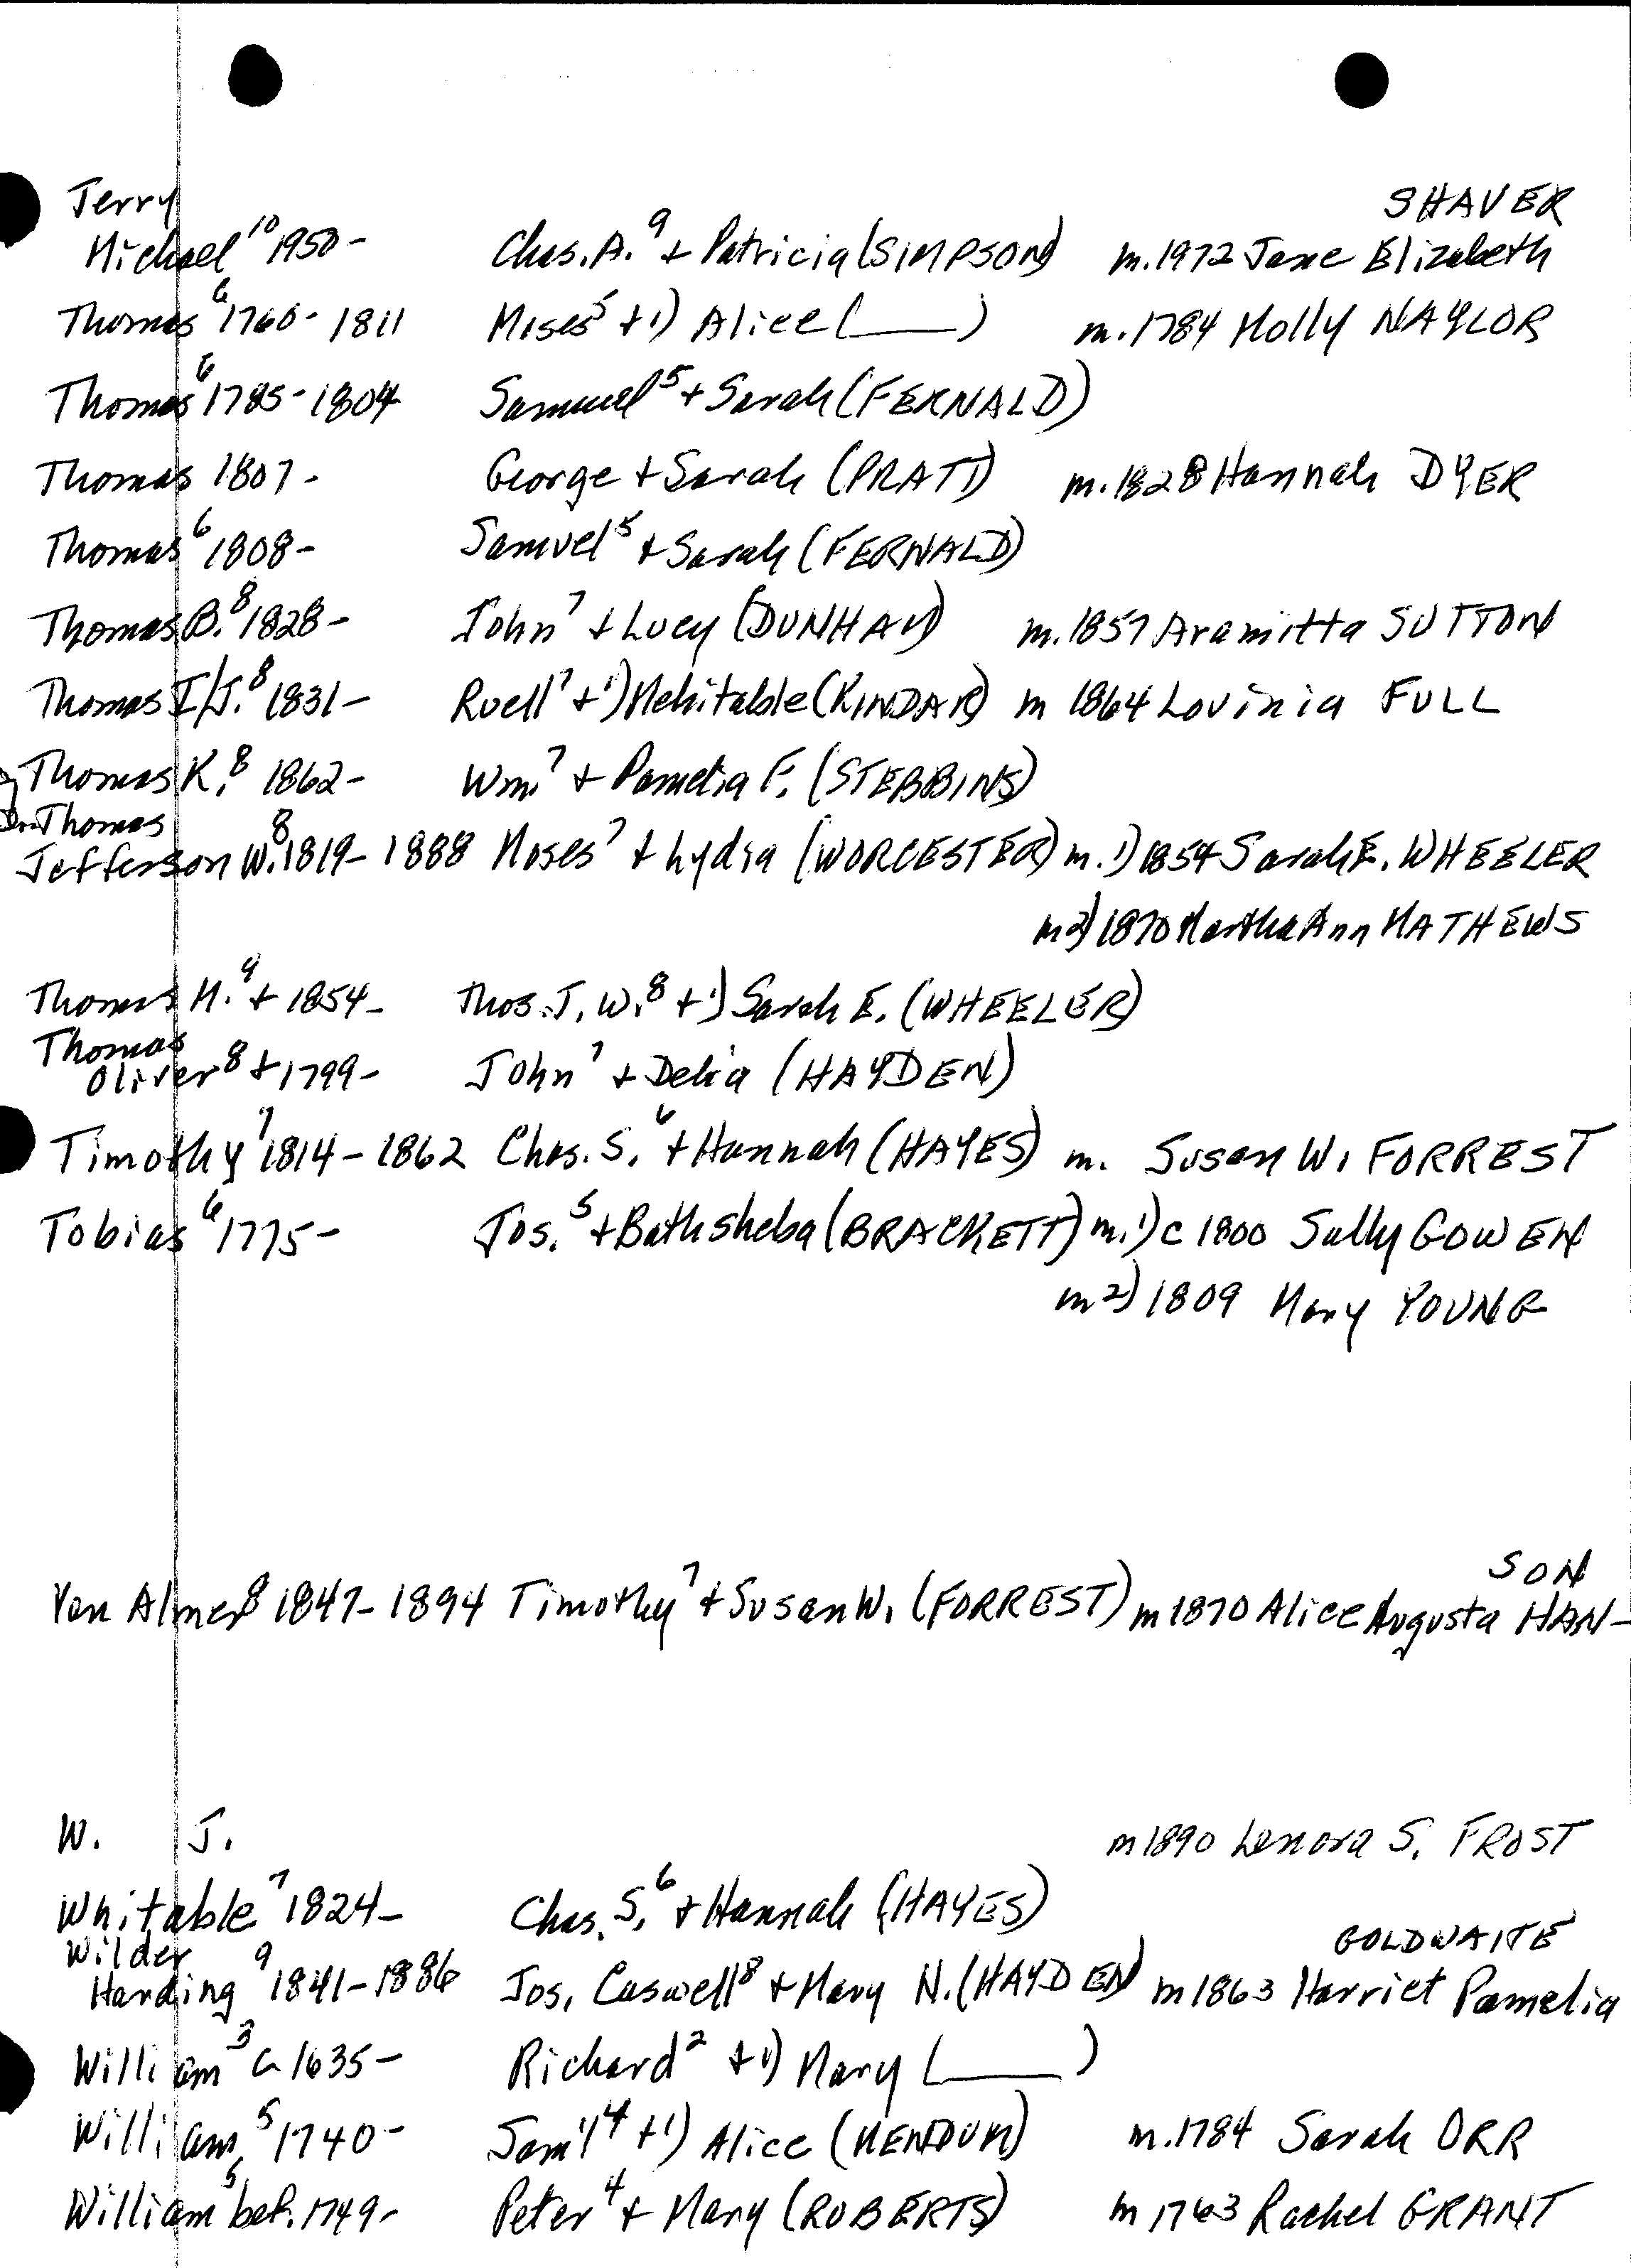 Jerry SHAVER
Michael¹⁰ 1950- Chas. A.⁹ + Patricia (SIMPSON) m. 1972 Jane Elizabeth
Thomas⁶ 1760-1811 Moses⁵ + 1) Alice (____) m. 1784 Molly NAYLOR
Thomas⁶ 1785-1804 Samuel⁵ + Sarah (FERNALD)
Thomas 1807- George + Sarah (PRATT) m. 1828 Hannah DYER
Thomas⁶ 1808- Samuel⁵ + Sarah (FERNALD)
Thomas B.⁸ 1828- John⁷ + Lucy (DUNHAM) m. 1857 Aramitta SUTTON
Thomas I/J.⁸ 1831- Ruell⁷ + 1) Mehitable (KINDAR) m 1864 Lovinia FULL
Thomas K.⁸ 1862- Wm.⁷ + Pamelia F. (STEBBINS)
Thomas
Jefferson W.⁸ 1819-1888 Moses⁷ + Lydia (WORCESTER) m. 1) 1854 Sarah E. WHEELER
m 2) 1870 Martha Ann MATHEWS
Thomas M.⁹ + 1854- Thos. J. W.⁸ + 1) Sarah E. (WHEELER)
Thomas
Oliver⁸ + 1799- John⁷ + Delia (HAYDEN)
Timothy⁷ 1814-1862 Chas. S.⁶ + Hannah (HAYES) m. Susan W. FORREST
Tobias⁶ 1775- Jos.⁵ + Bathsheba (BRACKETT) m. 1) c 1800 Sally GOWEN
m 2) 1809 Mary YOUNG
SON
Van Almer⁸ 1847-1894 Timothy⁷ + Susan W. (FORREST) m 1870 Alice Augusta HAN-
W. J. m 1890 Lenora S. FROST
Whitable⁷ 1824- Chas. S.⁶ + Hannah (HAYES)
Wilder GOLDWAITE
Harding⁹ 1841-1886 Jos. Caswell⁸ + Mary N. (HAYDEN) m 1863 Harriet Pamelia
William³ c 1635- Richard² + 1) Mary (____)
William⁵ 1740- Sam'l⁴ + 1) Alice (MENDUM) m. 1784 Sarah ORR
William⁵ bef. 1749- Peter⁴ + Mary (ROBERTS) m 1763 Rachel GRANT